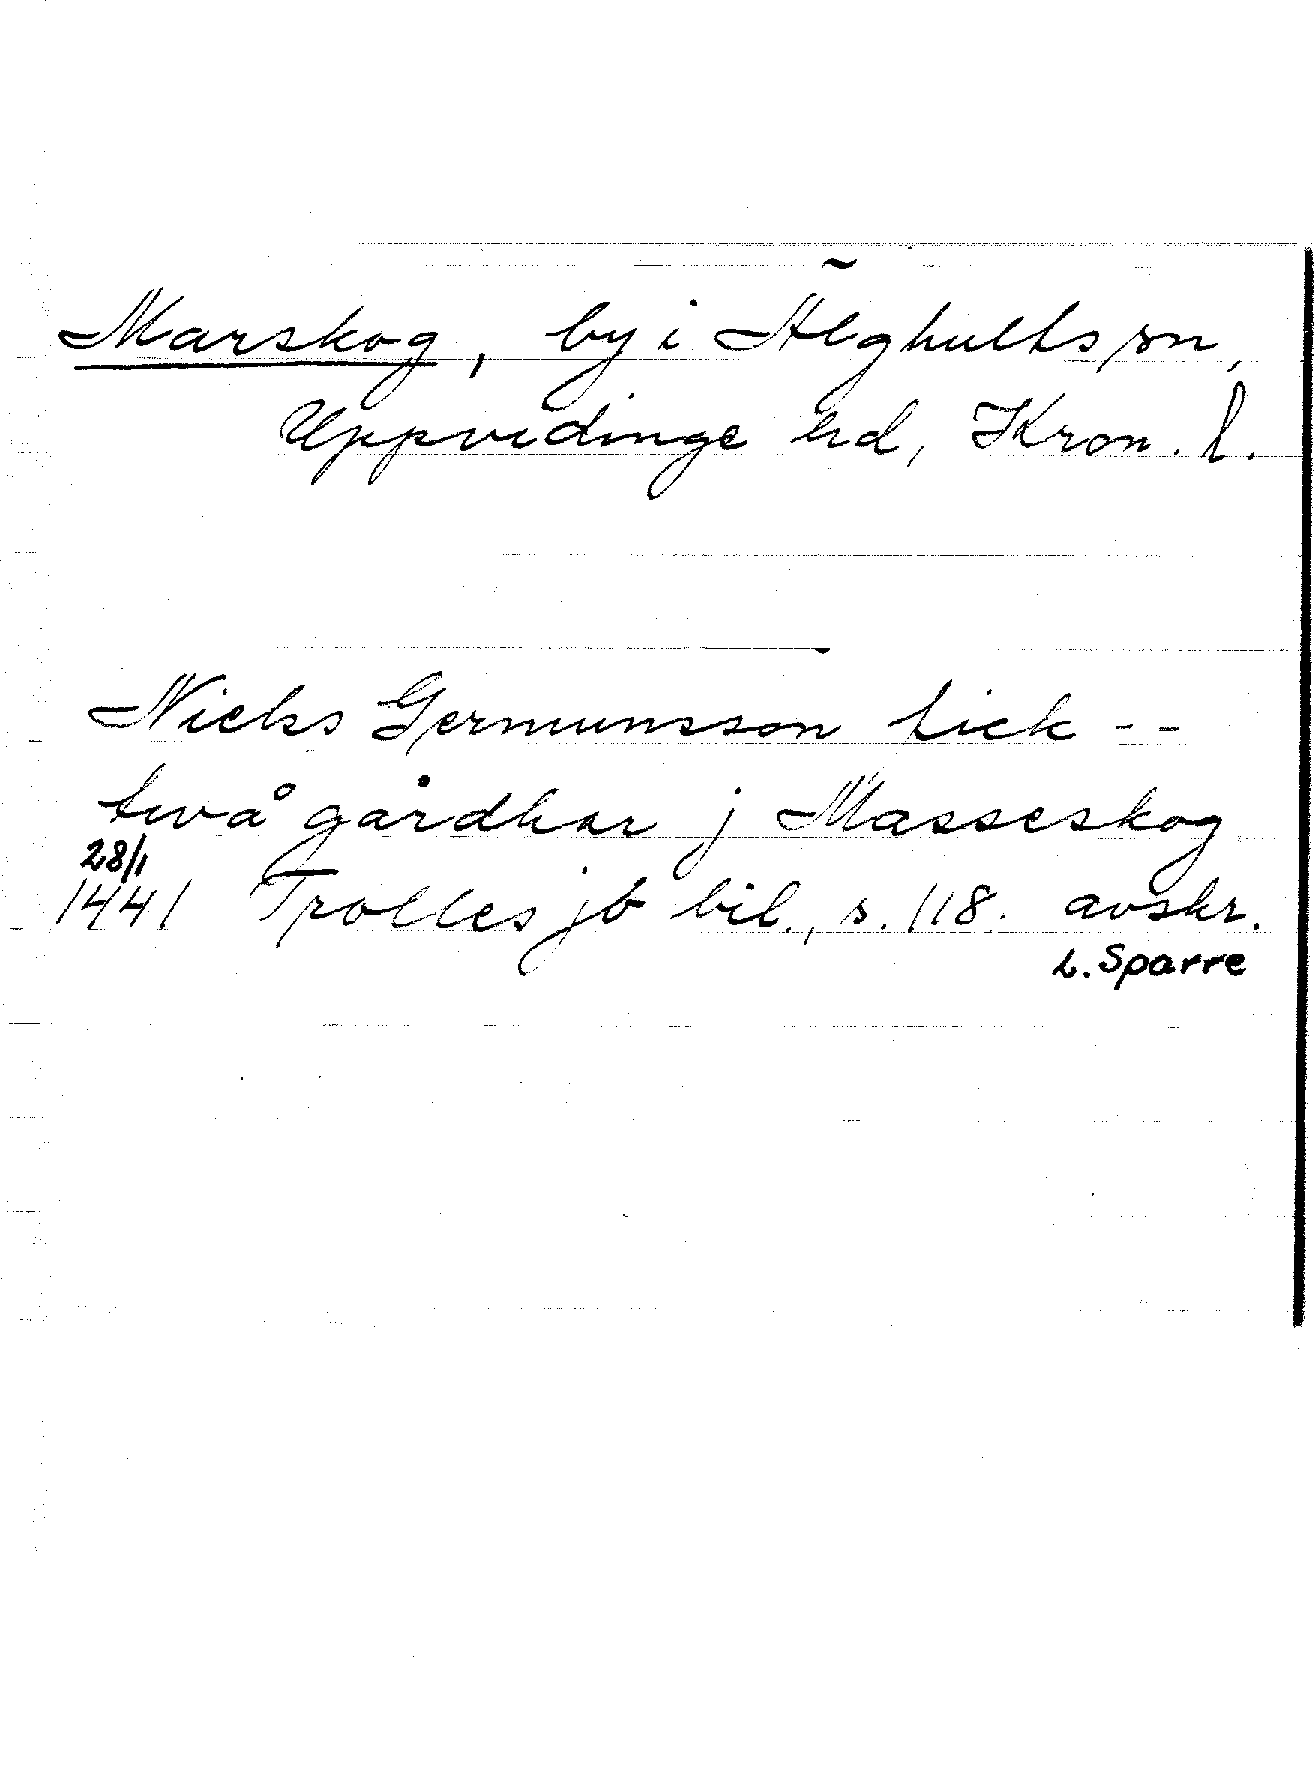 Marskog, by i Älghults sn,
Uppvidinge hd, Kron. l.
Niels Germunsson fick --
twå gårdhar j Masseskog
28/1
1441 Trolles jb bil., s. 118. avskr.
L. Sparre